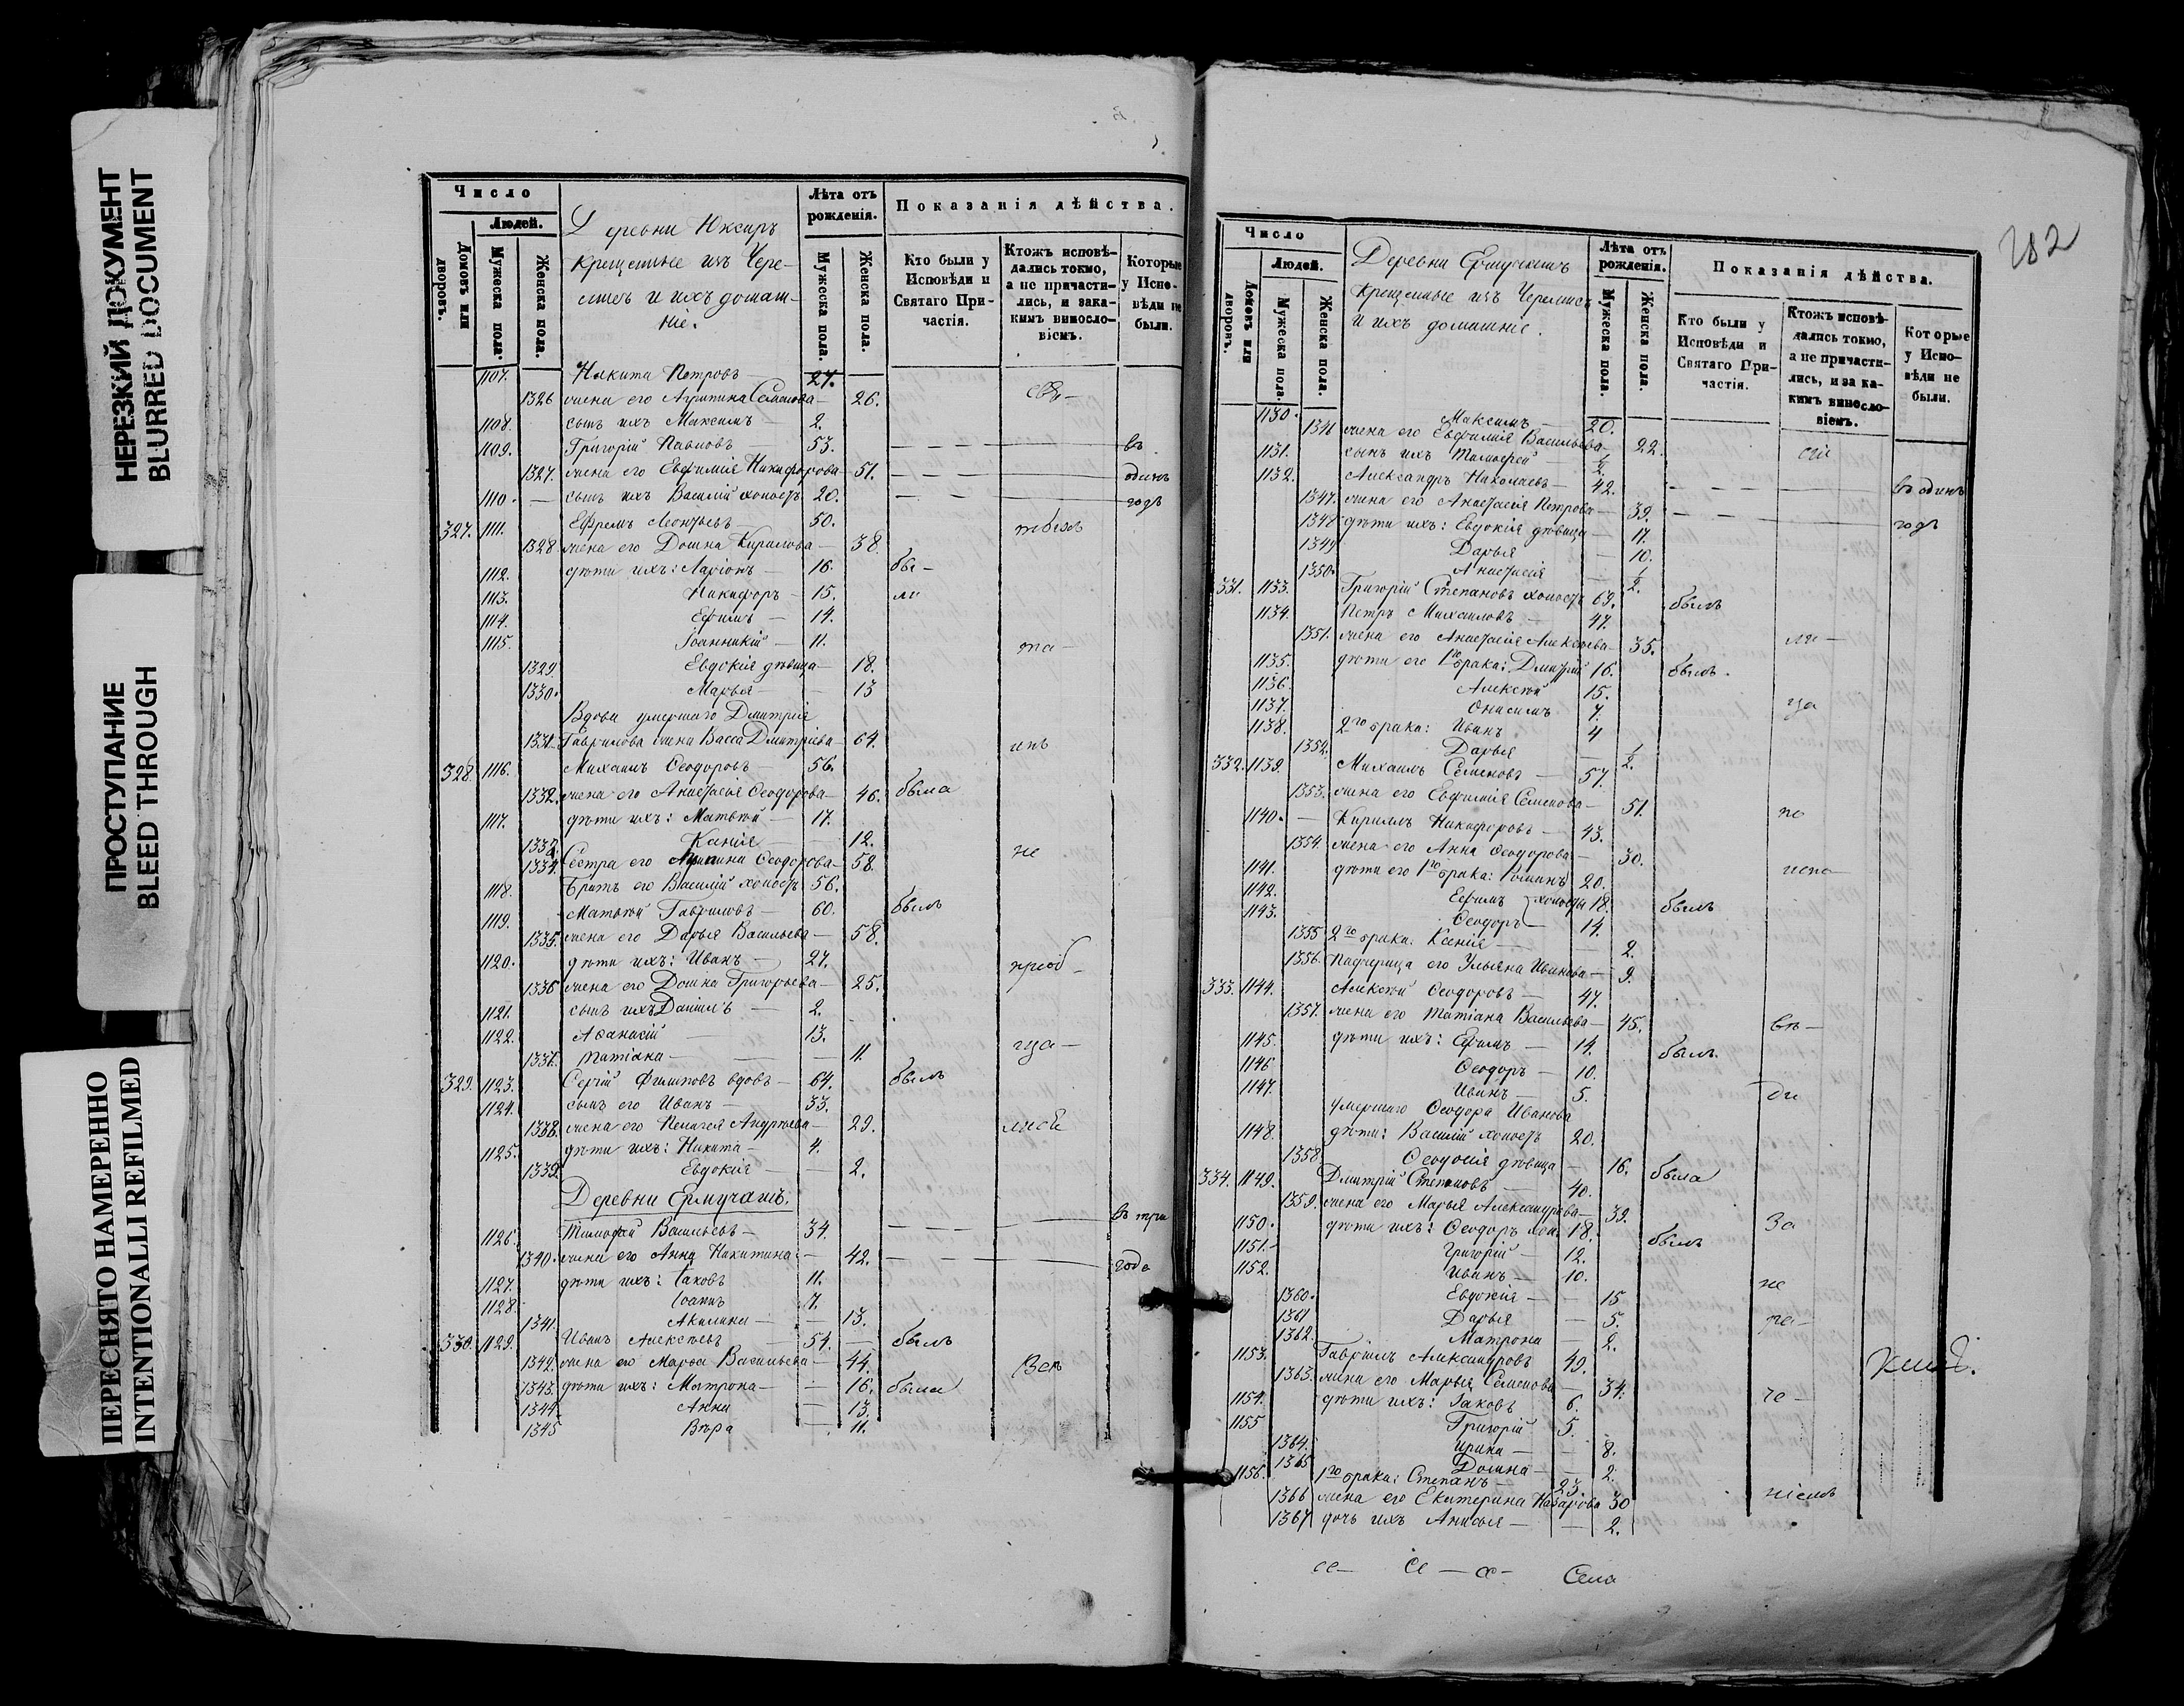 НЕРЕЗКИЙ ДОКУМЕНТ
BLURRED DOCUMENT
ПРОСТУПАНИЕ
BLEED THROUGH
ПЕРЕСНЯТО НАМЕРЕННО
INTENTIONALLI REFILMED
Число
Людей.
Домовъ или дворовъ.
Мужеска пола.
Женска пола.
Деревни Юксаръ
крещенные изъ Чере-
мисъ и ихъ домаш-
ніе.
Лѣта отъ рожденія.
Мужеска пола.
Женска пола.
Показанія дѣйства.
Кто были у Исповѣди и Святаго При-частія.
Ктожъ исповѣ-дались токмо, а не причасти-лись, и зака-кимъ винносло-віемъ.
Которые у Испо-вѣди не были.
1107. Никита Петровъ — 27.
1326 жена его Агрипина Семенова — 26.
1108. сынъ ихъ Максимъ — 2.
1109. Григорій Павловъ 53. въ
1327. жена его Евфимія Никифорова 51. одинъ
1110. — сынъ ихъ Василій холостъ 20. годъ
327. 1111. Ефремъ Леонтьевъ 50.
1328 жена его Домна Кирилова — 38.
1112. дѣти ихъ: Ларіонъ — 16. бы-
1113. Никифоръ — 15. ли
1114. Ефимъ — 14.
1115. Іоанникій — 11.
1329. Евдокія дѣвица — 18.
1330. Марья — 13
Вдова умершаго Дмитрія
1331. Гаврилова жена Васса Дмитріева 64.
328. 1116. Михаилъ Ѳеодоровъ — 56.
1332. жена его Анастасія Ѳеодорова — 46. была
1117. дѣти ихъ: Матвей — 17.
1333. Ксенія 12. не
1334. Сестра его Ѳеодорова — 58.
1118. Братъ его Василій холостъ 56.
1119. Матвей Гавриловъ — 60. былъ
1335. жена его Дарья Васильева — 58.
1120. дѣти ихъ: Иванъ — 27. пріоб-
1336 жена его Домна Григорьева — 25.
1121. сынъ ихъ Даніилъ — 2.
1122. Аѳанасій 13.
1336. Татіана — 11.
329. 1123. Сергій Филиповъ вдовъ — 64. былъ
1124. сынъ его Иванъ — 33.
1338. жена его Пелагея Андреева — 29.
1125. дѣти ихъ: Никита — 4.
1339. Евдокія — 2.
Деревни Ермучашъ.
1126. Тимофей Васильевъ — 34. въ три
1340. жена его Анна Никитина — 42. года
1127. дѣти ихъ: Іаковъ 11.
1128. Іоаннъ 7.
1341. Акилина — 13.
330. 1129. Иванъ Алексѣевъ 54. былъ
1342. жена его Марѳа Васильева — 44.
1343. дѣти ихъ: Матрона — 16. была
1344. Анна 13.
1345 Вѣра 11.
282
Число
Людей.
Домовъ или дворовъ.
Мужеска пола.
Женска пола.
Деревни Ермучашъ
крещенные изъ Черемисъ
и ихъ домашніе.
Лѣта отъ рожденія.
Мужеска пола.
Женска пола.
Показанія дѣйства.
Кто были у Исповѣди и Святаго При-частія.
Ктожъ исповѣ-дались токмо, а не причасти-лись, и за ка-кимъ винносло-віемъ.
Которые у Испо-вѣди не были.
1130. Максимъ — 20.
1346 жена его Евфимія Васильева — 22.
1131. сынъ ихъ Тимофей — 1/2.
1132. Александръ Николаевъ — 42. въ одинъ
1347. жена его Анастасія Петрова 39. годъ
1348 дѣти ихъ: Евдокія дѣвица — 17.
1349 Дарья — 10.
1350. Анастасія 1/2.
331. 1133. Григорій Степановъ холостъ 63. былъ
1134. Петръ Михаиловъ — 47.
1351. жена его Анастасія Алексѣева — 35.
1135. дѣти его 1го брака: Дмитрій 16. былъ.
1136. Алексѣй 15.
1137. Онисимъ 7.
1138. 2го брака: Иванъ 4
1352. Дарья 1/2.
332. 1139. Михаилъ Семеновъ — 57.
1353. жена его Евфимія Семенова — 51. по
1140. — Кирилъ Никифоровъ — 43.
1354. жена его Анна Ѳеодорова — 30.
1141. дѣти его 1го брака: Романъ 20.
1142. Ефимъ холосты 18. былъ
1143. Ѳеодоръ 14.
1355 2го брака: Ксенія — 2.
1356. Падчерица его Ульяна Иванова — 9.
333. 1144. Алексѣй Ѳеодоровъ — 47.
1357. жена его Татіана Васильева — 45.
1145. дѣти ихъ: Ефимъ — 14. былъ
1146 Ѳеодоръ — 10.
1147. Иванъ — 5.
умершаго Ѳеодора Иванова
1148. дѣти: Василій холостъ 20.
1358 Ѳеодосія дѣвица — 16. была
334. 1149. Дмитрій Степановъ — 40.
1359. жена его Марья Александрова — 39. За
1150. дѣти ихъ: Ѳеодоръ хол. 18. былъ
1151. Григорій — 12.
1152. Иванъ — 10. не
1360. Евдокія — 15
1361 Дарья — 5.
1362. Матрона 2.
1153. Гавріилъ Александровъ 40.
1363. жена его Марья Семенова — 34.
1154. дѣти ихъ: Іаковъ 6. че-
1155 Григорій 5.
1364. Ирина — 8.
1365 Домна — 2.
1156. 1го брака: Степанъ — 23. ніемъ
1366 жена его Екатерина Назарова 30
1367 дочь ихъ Анисья — 2.
Села